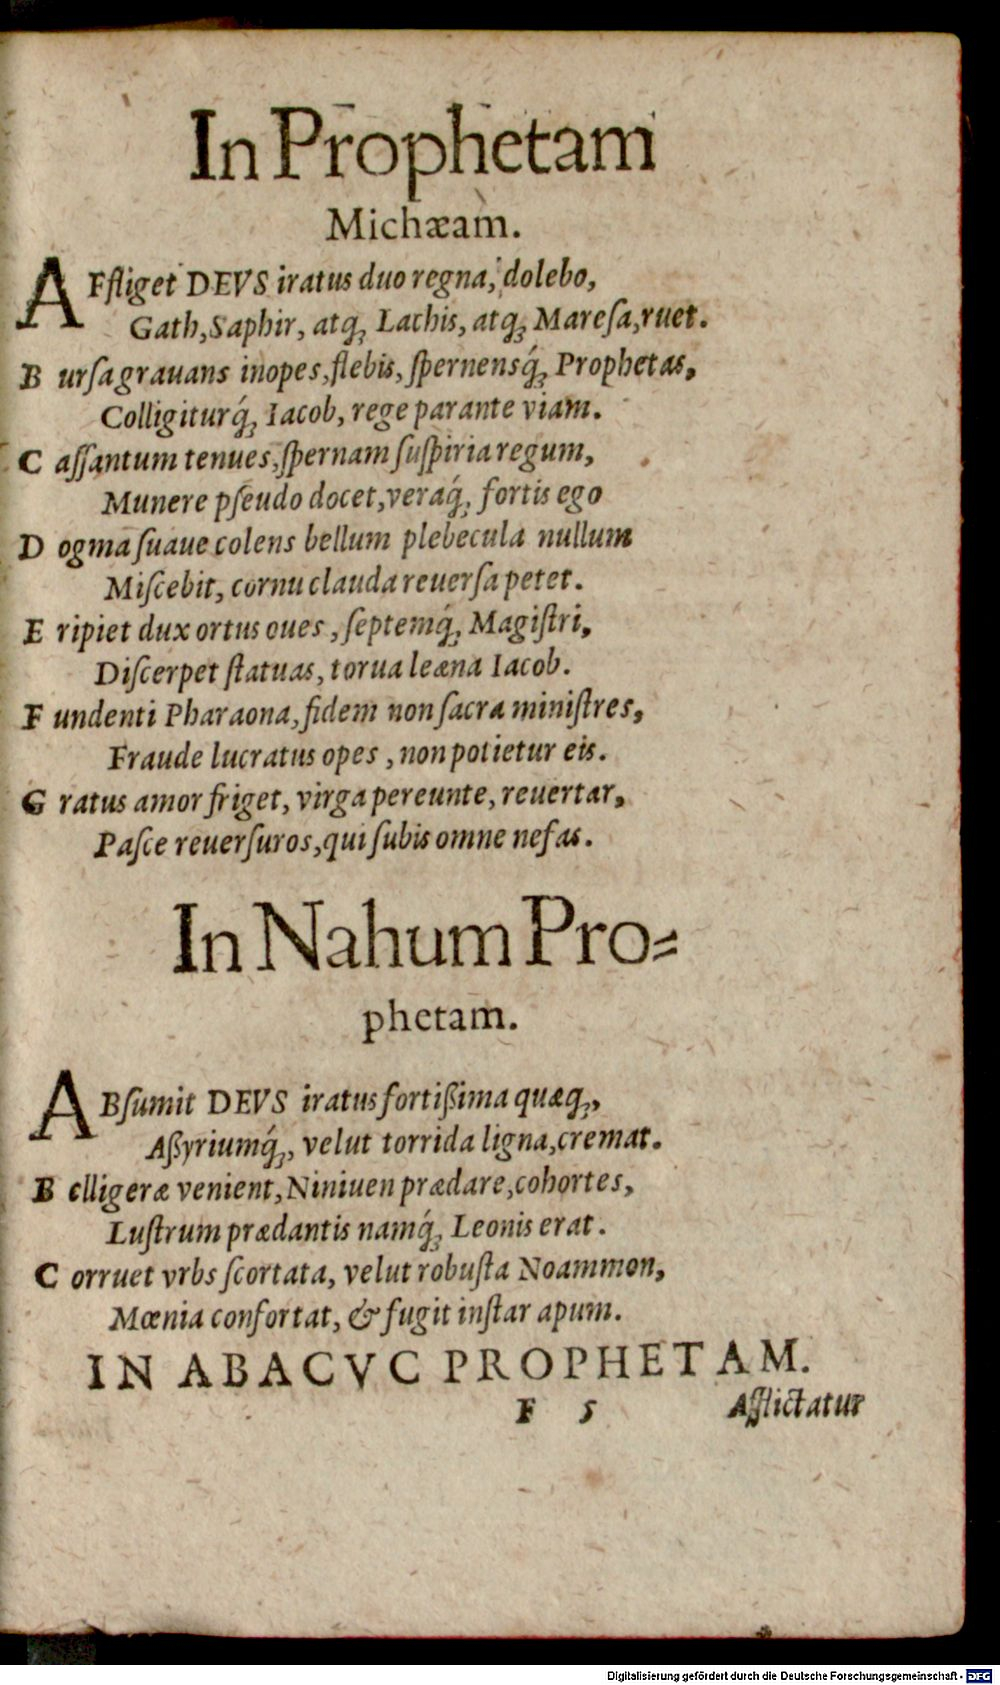 In Prophetam
Michæam.
AFfliget DEVS iratus duo regna, dolebo,
Gath, Saphir, atq́ꝫ Lachis, atqꝫ Maresa, ruet.
B ursa grauans inopes, flebis, spernensq́ꝫ Prophetas,
Colligiturq́ꝫ Iacob, rege parante viam.
C assantum tenues, spernam suspiria regum,
Munere pseudo docet, veraq́ꝫ fortis ego
D ogma suaue colens bellum plebecula nullum
Miscebit, cornu clauda reuersa petet.
E ripiet dux ortus oues, septemq́ꝫ Magistri,
Discerpet statuas, torua leæna Iacob.
F undenti Pharaona, fidem non sacra ministres,
Fraude lucratus opes, non potietur eis.
G ratus amor friget, virga pereunte, reuertar,
Pasce reuersuros, qui subis omne nefas.
In Nahum Pro=
phetam.
ABsumit DEVS iratus fortißima quæqꝫ,
Aßyriumq́ꝫ, velut torrida ligna, cremat.
B elligeræ venient, Niniuen prædare, cohortes,
Lustrum prædantis namq́ꝫ Leonis erat.
C orruet vrbs scortata, velut robusta Noammon,
Mœnia confortat, & fugit instar apum.
IN ABACVC PROPHETAM.
F 5 Afflictatur
Digitalisierung gefördert durch die Deutsche Forschungsgemeinschaft - DFG